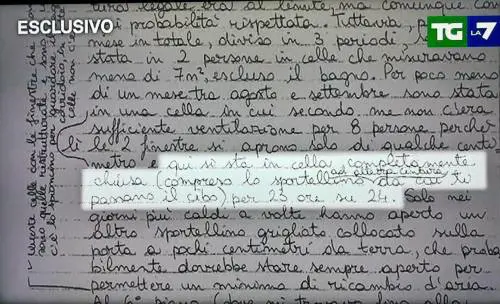 ESCLUSIVO
TG LA7
legale era al limite, ma comunque con
probabilità rispettata. Tuttavia,
mese in totale, diviso in 3 periodi, s
stata in 2 persone in celle che misuravano
meno di 7m², escluso il bagno. Per poco meno
di un mese tra agosto e settembre sono stata
in una cella in cui secondo me non c'era
sufficiente ventilazione per 8 persone perché
lì le 2 finestre si aprono solo di qualche centi-
metro e qui si sta in cella completamente
chiusa (compreso lo sportellino ad altezza cintura da cui ti
passano il cibo) per 23 ore su 24. Solo nei
giorni più caldi a volte hanno aperto un
altro sportellino grigliato collocato sulla
porta a pochi centimetri da terra, che proba
bilmente dovrebbe stare sempre aperto per
permettere un minimo di ricambio d'aria.
Al 6° piano (dove mi trovavo
queste celle con le finestre che
sono quelle ristrutturate e sono